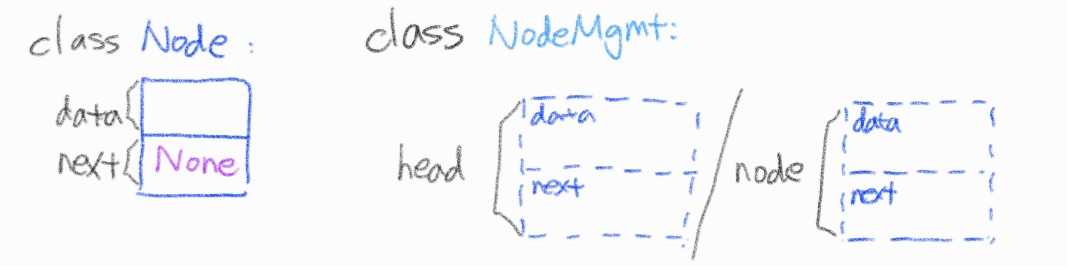 class Node :
data
next None
class NodeMgmt:
head
data
next
node
data
next